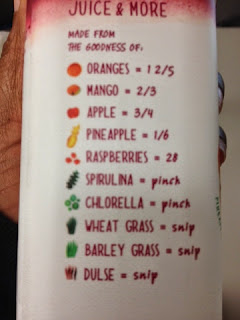 JUICE & MORE
MADE FROM
THE GOODNESS OF:
ORANGES = 1 2/5
MANGO = 2/3
APPLE = 3/4
PINEAPPLE = 1/6
RASPBERRIES = 28
SPIRULINA = pinch
CHLORELLA = pinch
WHEAT GRASS = snip
BARLEY GRASS = snip
DULSE = snip